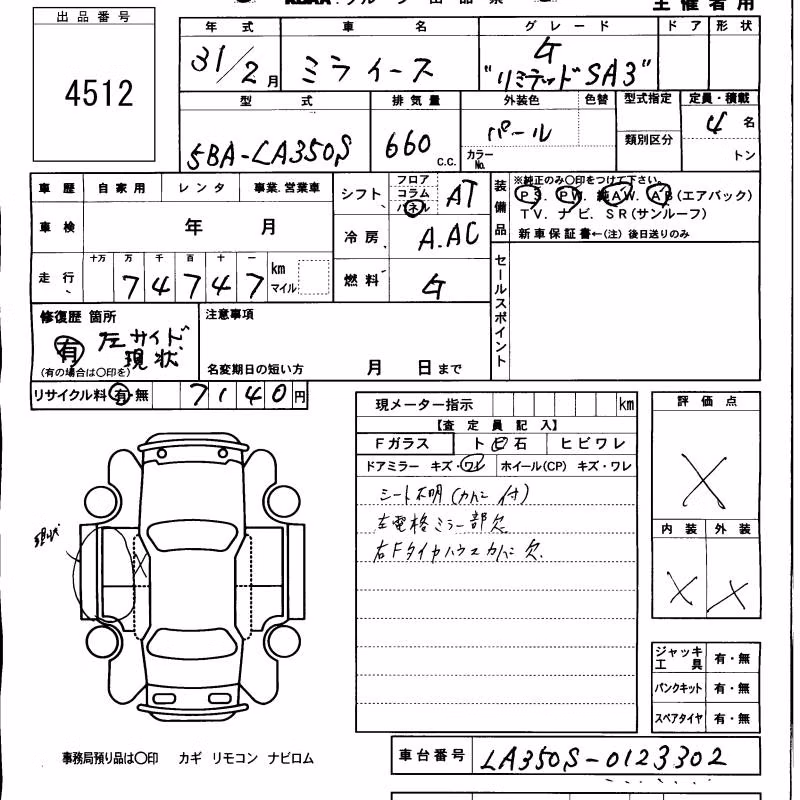 主催者用
出品番号
4512
年式 車名 グレード ドア 形状
31/2月 ミライース G "リミテッドSA3"
型式 排気量 外装色 色替 型式指定 定員・積載
5BA-LA350S 660 C.C. パール カラーNo. 類別区分 4名 トン
車歴 自家用 レンタ 事業.営業車
車検 年 月
走行 十万 万 千 百 十 一
74747 km マイル
シフト フロア コラム パネル AT
冷房 A.AC
燃料 G
装備品
※純正のみ○印をつけて下さい。
PS. PW. 純AW. AB(エアバック)
TV. ナビ. SR(サンルーフ)
新車保証書←(注)後日送りのみ
セールスポイント
修復歴 箇所
有 左サイド 現状
(有の場合は○印を)
注意事項
名変期日の短い方 月 日まで
リサイクル料 有・無 7140円
現メーター指示 km
【査定員記入】
Fガラス ト石 ヒビワレ
ドアミラー キズ・ワレ ホイール(CP) キズ・ワレ
シート不明(カバー付)
左電格ミラー部欠
右Fタイヤハウスカバー欠.
評価点
X
内装 外装
X X
現状
X
ジャッキ工具 有・無
パンクキット 有・無
スペアタイヤ 有・無
事務局預り品は○印 カギ リモコン ナビロム
車台番号 LA350S-0123302